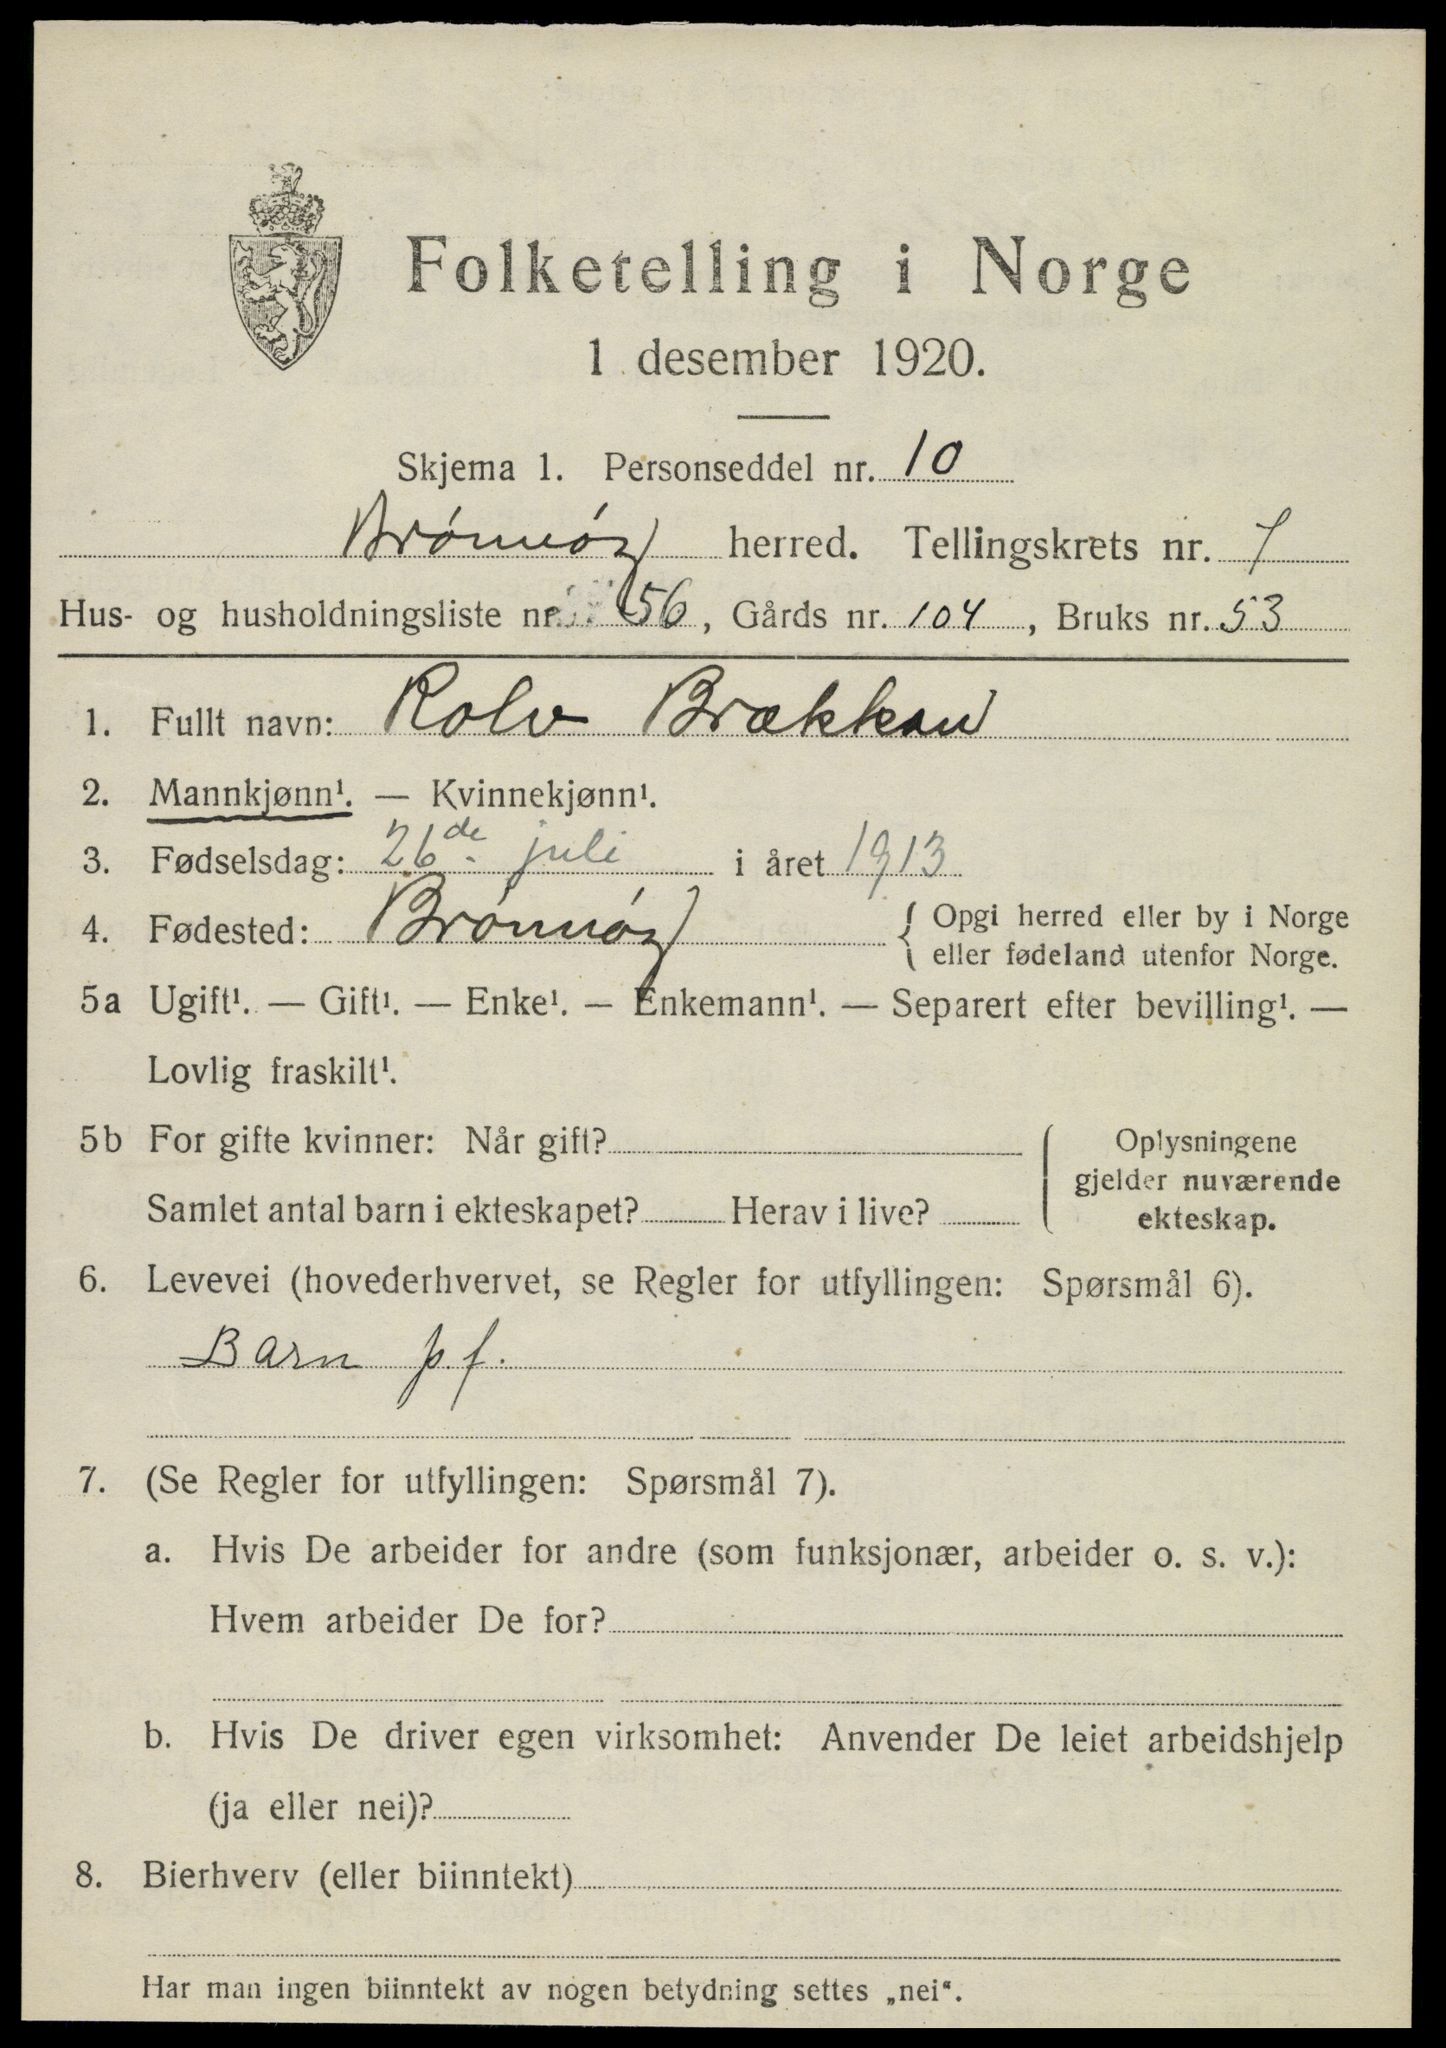 Folketelling i Norge
1 desember 1920.
Skjema 1. Personseddel nr. 10
Brønnøy herred. Tellingskrets nr. 7
Hus- og husholdningsliste nr. 56, Gårds nr. 104, Bruks nr. 53
1. Fullt navn: Rolv Brækkan
2. Mannkjønn¹. — Kvinnekjønn¹.
3. Fødselsdag: 26de juli i året 1913
4. Fødested: Brønnøy { Opgi herred eller by i Norge
eller fødeland utenfor Norge.
5a Ugift¹. — Gift¹. — Enke¹. — Enkemann¹. — Separert efter bevilling¹. —
Lovlig fraskilt¹.
5b For gifte kvinner: Når gift?
Samlet antal barn i ekteskapet? Herav i live?
Oplysningene
gjelder nuværende
ekteskap.
6. Levevei (hovederhvervet, se Regler for utfyllingen: Spørsmål 6).
Barn p.f.
7. (Se Regler for utfyllingen: Spørsmål 7).
a. Hvis De arbeider for andre (som funksjonær, arbeider o. s. v.):
Hvem arbeider De for?
b. Hvis De driver egen virksomhet: Anvender De leiet arbeidshjelp
(ja eller nei)?
8. Bierhverv (eller biinntekt)
Har man ingen biinntekt av nogen betydning settes „nei“.